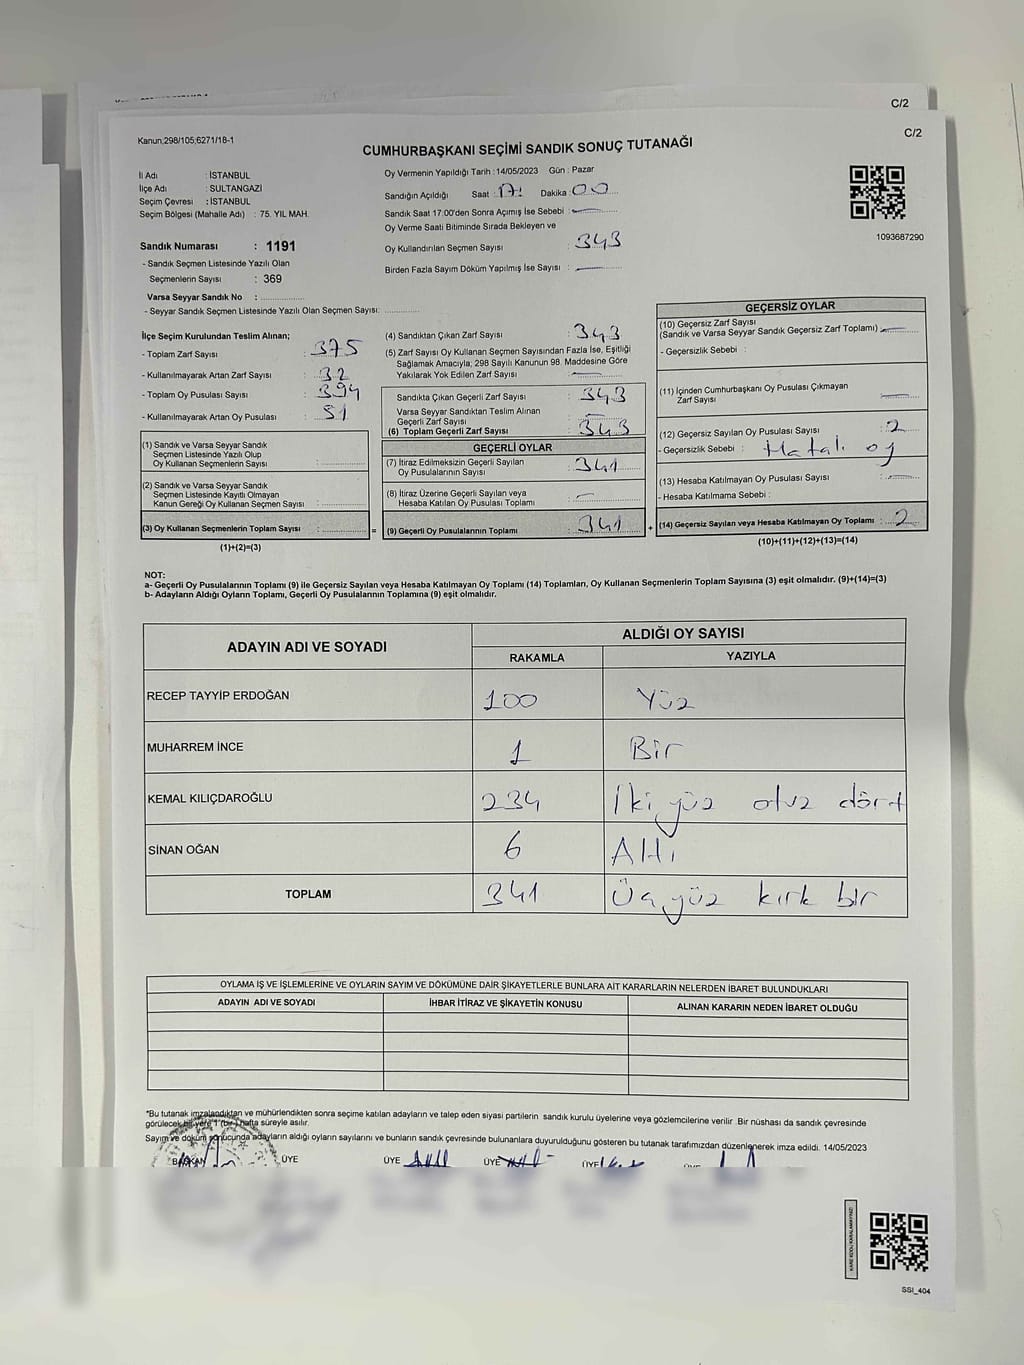 C/2
C/2
Kanun;298/105;6271/18-1
CUMHURBAŞKANI SEÇİMİ SANDIK SONUÇ TUTANAĞI
İl Adı : İSTANBUL
İlçe Adı : SULTANGAZİ
Seçim Çevresi : İSTANBUL
Seçim Bölgesi (Mahalle Adı) : 75. YIL MAH.
Sandık Numarası : 1191
- Sandık Seçmen Listesinde Yazılı Olan
Seçmenlerin Sayısı : 369
Varsa Seyyar Sandık No :
- Seyyar Sandık Seçmen Listesinde Yazılı Olan Seçmen Sayısı:
Oy Vermenin Yapıldığı Tarih : 14/05/2023 Gün : Pazar
Sandığın Açıldığı Saat : 17 Dakika : 00
Sandık Saat 17:00'den Sonra Açımış İse Sebebi : —
Oy Verme Saati Bitiminde Sırada Bekleyen ve
Oy Kullandırılan Seçmen Sayısı : 343
Birden Fazla Sayım Döküm Yapılmış İse Sayısı : —
1093687290
İlçe Seçim Kurulundan Teslim Alınan;
- Toplam Zarf Sayısı : 375
- Kullanılmayarak Artan Zarf Sayısı : 32
- Toplam Oy Pusulası Sayısı : 394
- Kullanılmayarak Artan Oy Pusulası : 51
(1) Sandık ve Varsa Seyyar Sandık
Seçmen Listesinde Yazılı Olup
Oy Kullanan Seçmenlerin Sayısı :
(2) Sandık ve Varsa Seyyar Sandık
Seçmen Listesinde Kayıtlı Olmayan
Kanun Gereği Oy Kullanan Seçmen Sayısı :
(3) Oy Kullanan Seçmenlerin Toplam Sayısı : =
(1)+(2)=(3)
(4) Sandıktan Çıkan Zarf Sayısı : 343
(5) Zarf Sayısı Oy Kullanan Seçmen Sayısından Fazla İse, Eşitliği
Sağlamak Amacıyla; 298 Sayılı Kanunun 98. Maddesine Göre
Yakılarak Yok Edilen Zarf Sayısı : —
Sandıkta Çıkan Geçerli Zarf Sayısı : 343
Varsa Seyyar Sandıktan Teslim Alınan
Geçerli Zarf Sayısı : —
(6) Toplam Geçerli Zarf Sayısı : 343
GEÇERLİ OYLAR
(7) İtiraz Edilmeksizin Geçerli Sayılan
Oy Pusulalarının Sayısı : 341
(8) İtiraz Üzerine Geçerli Sayılan veya
Hesaba Katılan Oy Pusulası Toplamı : —
(9) Geçerli Oy Pusulalarının Toplamı : 341 +
GEÇERSİZ OYLAR
(10) Geçersiz Zarf Sayısı
(Sandık ve Varsa Seyyar Sandık Geçersiz Zarf Toplamı) : —
- Geçersizlik Sebebi :
(11) İçinden Cumhurbaşkanı Oy Pusulası Çıkmayan
Zarf Sayısı : —
(12) Geçersiz Sayılan Oy Pusulası Sayısı : 2
- Geçersizlik Sebebi : Hatalı oy
(13) Hesaba Katılmayan Oy Pusulası Sayısı : —
- Hesaba Katılmama Sebebi :
(14) Geçersiz Sayılan veya Hesaba Katılmayan Oy Toplamı : 2
(10)+(11)+(12)+(13)=(14)
NOT:
a- Geçerli Oy Pusulalarının Toplamı (9) ile Geçersiz Sayılan veya Hesaba Katılmayan Oy Toplamı (14) Toplamları, Oy Kullanan Seçmenlerin Toplam Sayısına (3) eşit olmalıdır. (9)+(14)=(3)
b- Adayların Aldığı Oyların Toplamı, Geçerli Oy Pusulalarının Toplamına (9) eşit olmalıdır.
ADAYIN ADI VE SOYADI ALDIĞI OY SAYISI
RAKAMLA YAZIYLA
RECEP TAYYİP ERDOĞAN 100 Yüz
MUHARREM İNCE 1 Bir
KEMAL KILIÇDAROĞLU 234 İki yüz otuz dört
SİNAN OĞAN 6 Altı
TOPLAM 341 Üçyüz kırk bir
OYLAMA İŞ VE İŞLEMLERİNE VE OYLARIN SAYIM VE DÖKÜMÜNE DAİR ŞİKAYETLERLE BUNLARA AİT KARARLARIN NELERDEN İBARET BULUNDUKLARI
ADAYIN ADI VE SOYADI İHBAR İTİRAZ VE ŞİKAYETİN KONUSU ALINAN KARARIN NEDEN İBARET OLDUĞU
*Bu tutanak imzalandıktan ve mühürlendikten sonra seçime katılan adayların ve talep eden siyasi partilerin sandık kurulu üyelerine veya gözlemcilerine verilir .Bir nüshası da sandık çevresinde
görülecek bir yere 1 (bir) hafta süreyle asılır.
Sayım ve döküm sonucunda adayların aldığı oyların sayılarını ve bunların sandık çevresinde bulunanlara duyurulduğunu gösteren bu tutanak tarafımızdan düzenlenerek imza edildi. 14/05/2023
BAŞKAN ÜYE ÜYE ÜYE ÜYE
SSI_404